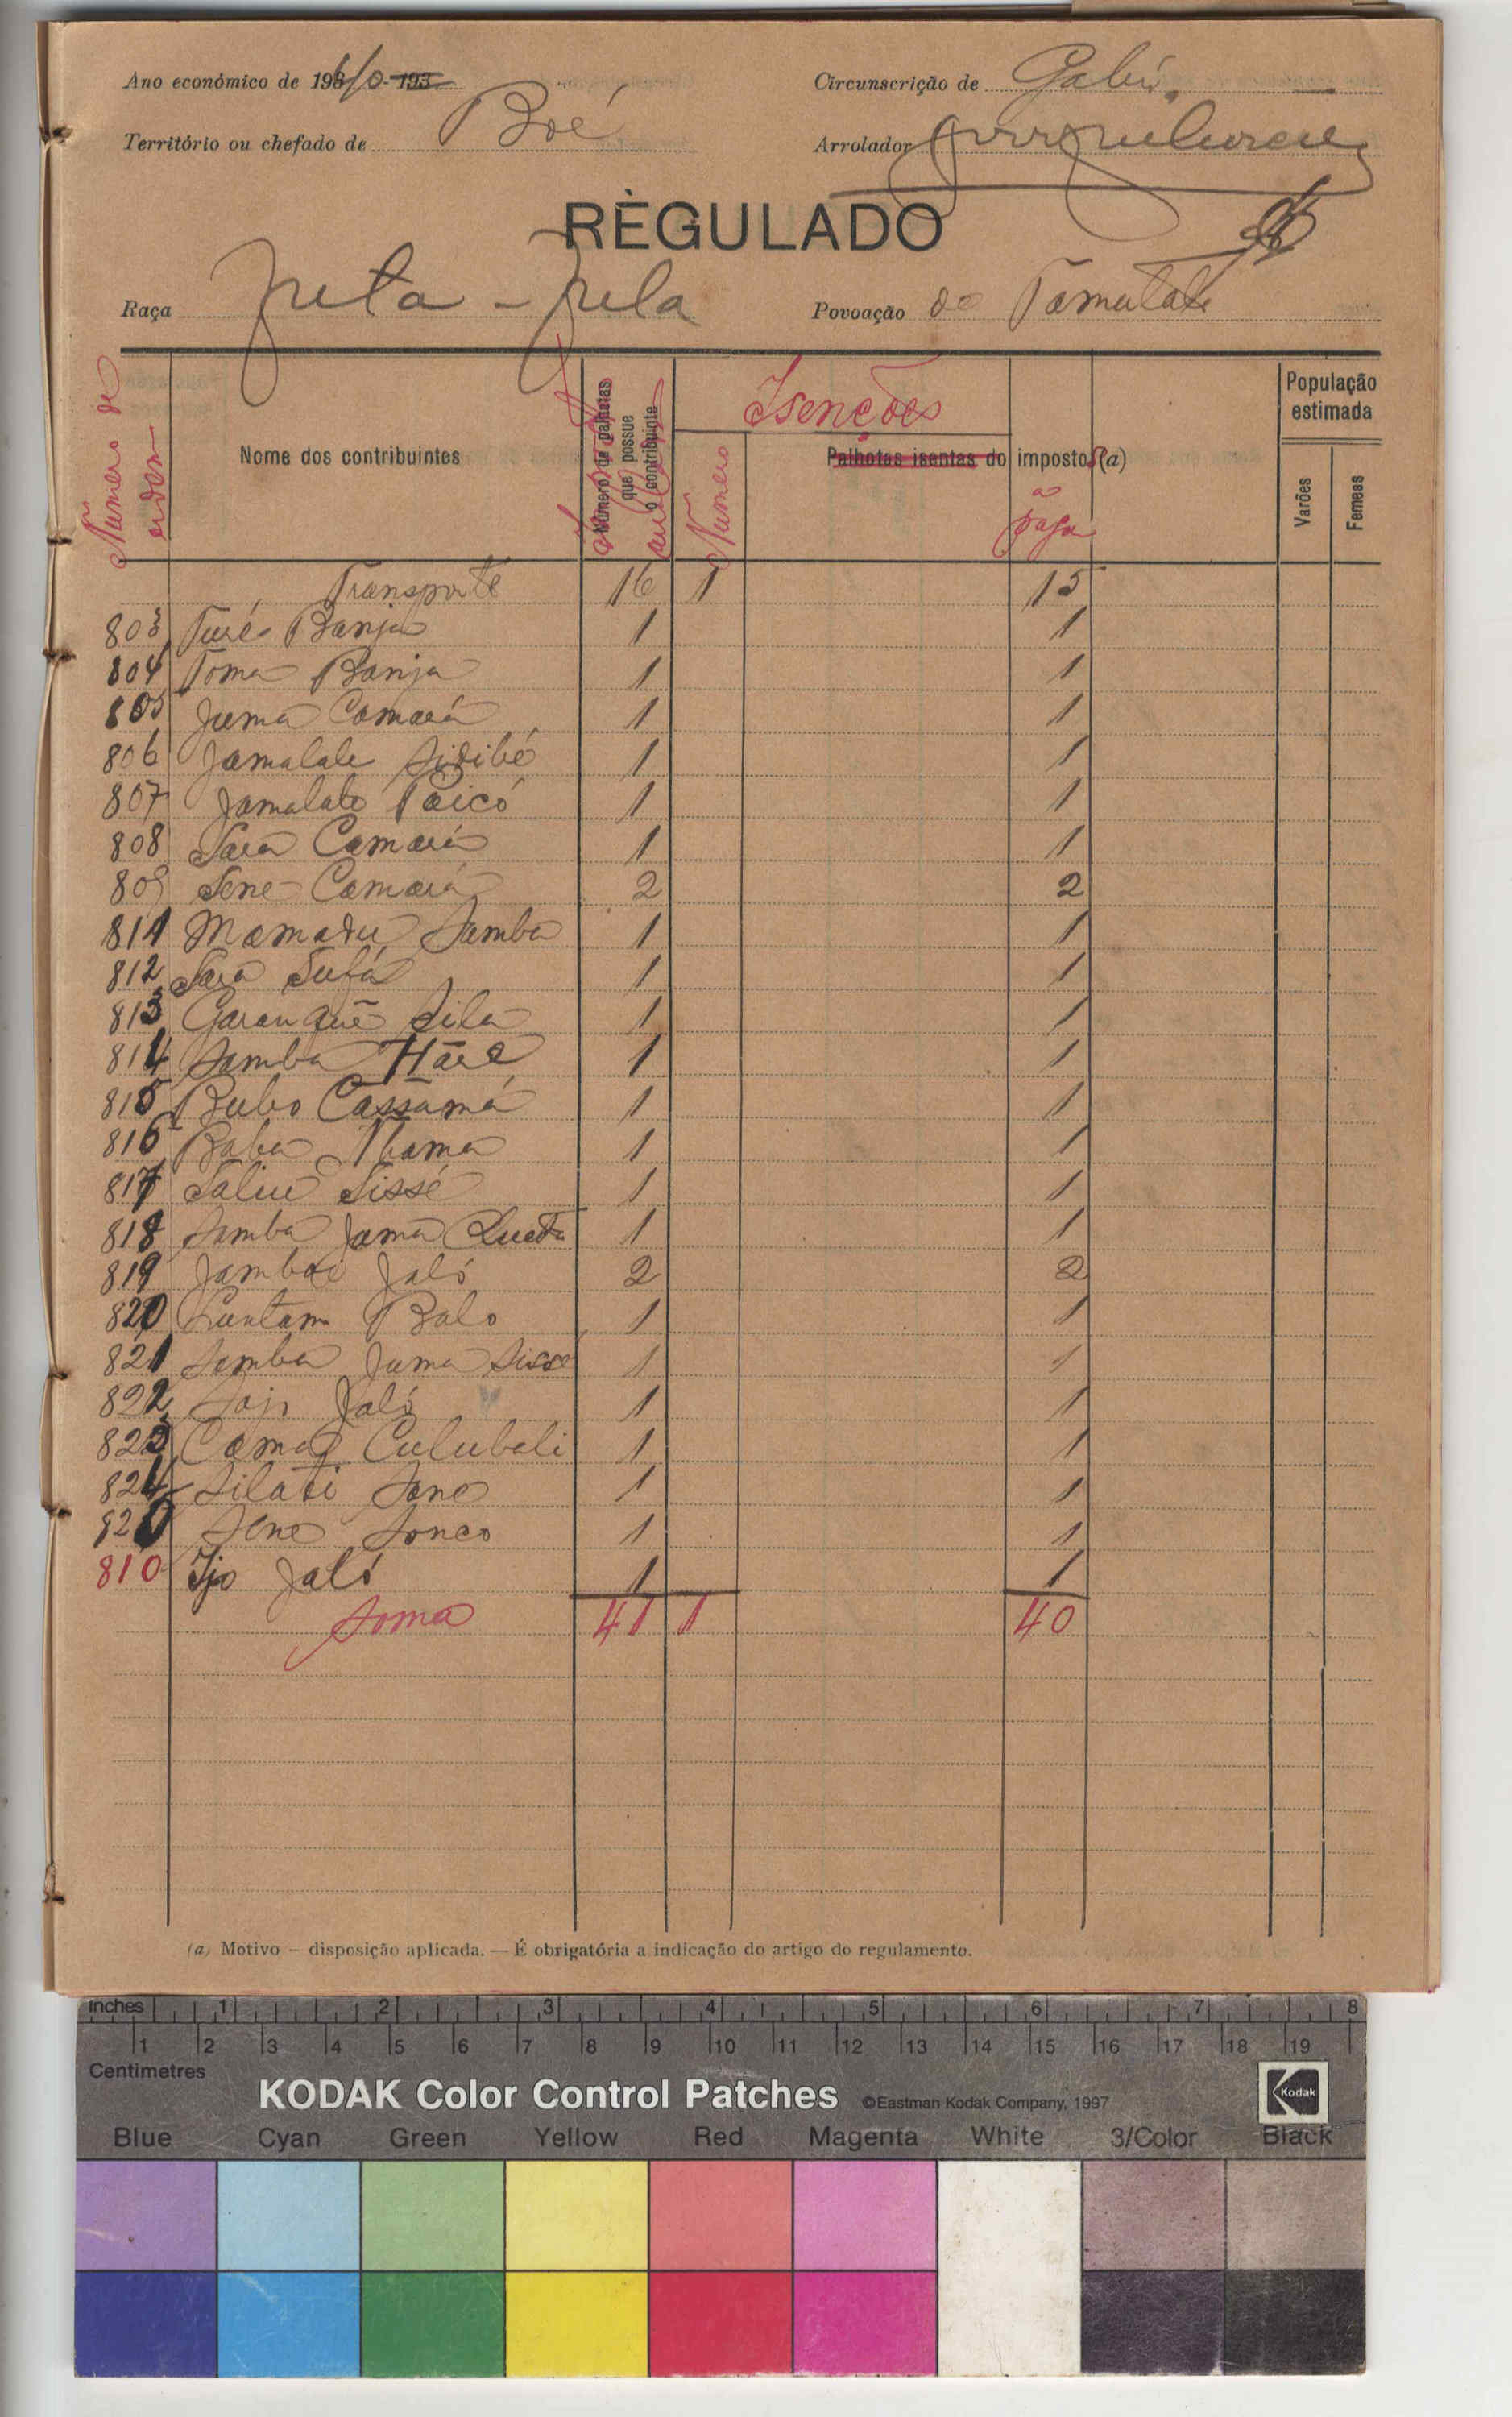 Ano económico de 1940-193
Circunscrição de Gabú.
Território ou chefado de Boé
Arrolador
REGULADO
Raça futa-fula
Povoação de Tamulate
Número de ordem
Nome dos contribuintes
Número de palhotas que possue o contribuinte
Isenções
Número
Palhotas isentas do impostos (a)
a paga
População estimada
Varões
Femeas
Transporte 16 1 15
803 Turé Banja 1 1
804 Toma Banja 1 1
805 Juma Camará 1 1
806 Jamalale Sidibé 1 1
807 Jamalale Paicó 1 1
808 Sara Camará 1 1
809 Sene Camará 2 2
811 Mamadu Samba 1 1
812 Sara Sufá 1 1
813 Garanquê Sila 1 1
814 Samba 1 1
815 Bubo Cassamá 1 1
816 Baba Thama 1 1
817 Saliu Sissé 1 1
818 Samba Jama Queta 1 1
819 Jambai Jaló 2 2
820 Cuntam Balo 1 1
821 Samba Juma Sisse 1 1
822 Sajo Jaló 1 1
823 Camará Culubali 1 1
824 Silati Sano 1 1
820 Sene Sonco 1 1
810 Ijo Jaló 1 1
Soma 41 1 40
(a) Motivo — disposição aplicada. — É obrigatória a indicação do artigo do regulamento.
inches 1 2 3 4 5 6 7 8
1 2 3 4 5 6 7 8 9 10 11 12 13 14 15 16 17 18 19
Centimetres
KODAK Color Control Patches ©Eastman Kodak Company, 1997 Kodak
Blue Cyan Green Yellow Red Magenta White 3/Color Black